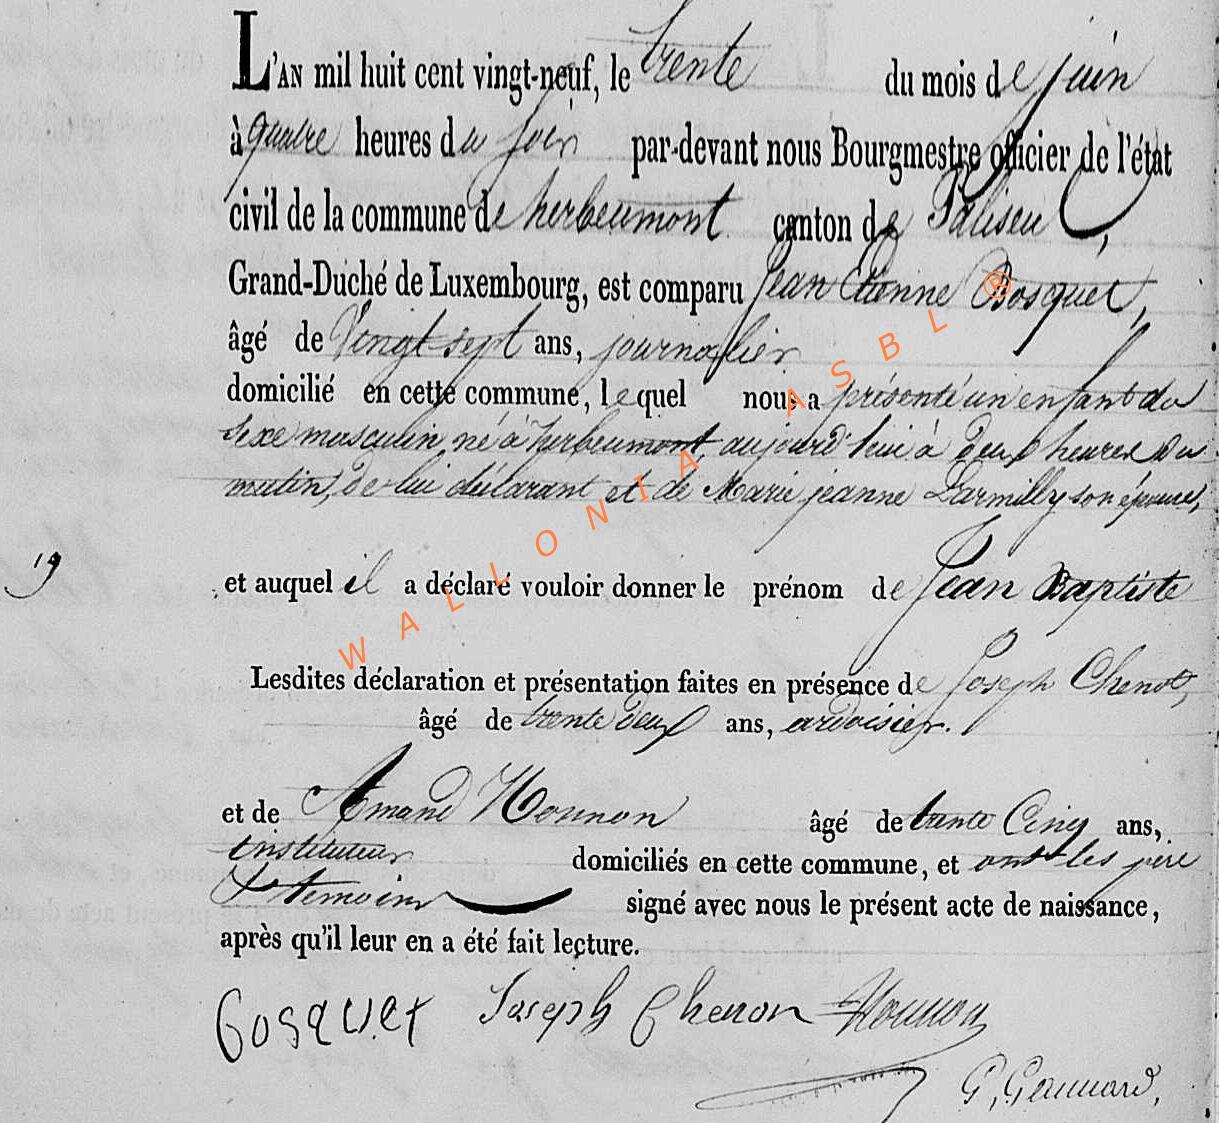 L'AN mil huit cent vingt-neuf, le trente du mois de juin
à quatre heures du soir par-devant nous Bourgmestre officier de l'état
civil de la commune de herbeumont canton de Paliseul,
Grand-Duché de Luxembourg, est comparu Jean Etienne Bosquet,
âgé de Vingt sept ans, journalier
domicilié en cette commune, lequel nous a présenté un enfant du
sexe masculin, né à herbeumont, aujourd'hui à deux heures du
matin, de lui déclarant et de Marie jeanne Darmilly son épouse,
19
et auquel il a déclaré vouloir donner le prénom de Jean Baptiste
Lesdites déclaration et présentation faites en présence de Joseph
âgé de trente deux ans, ardoisier.
et de Amand Hounon âgé de trente Cinq ans,
instituteur domiciliés en cette commune, et ont les père
& temoins signé avec nous le présent acte de naissance,
après qu'il leur en a été fait lecture.
bosquet Joseph Chenon Hounon
WALLONIA ASBL ®